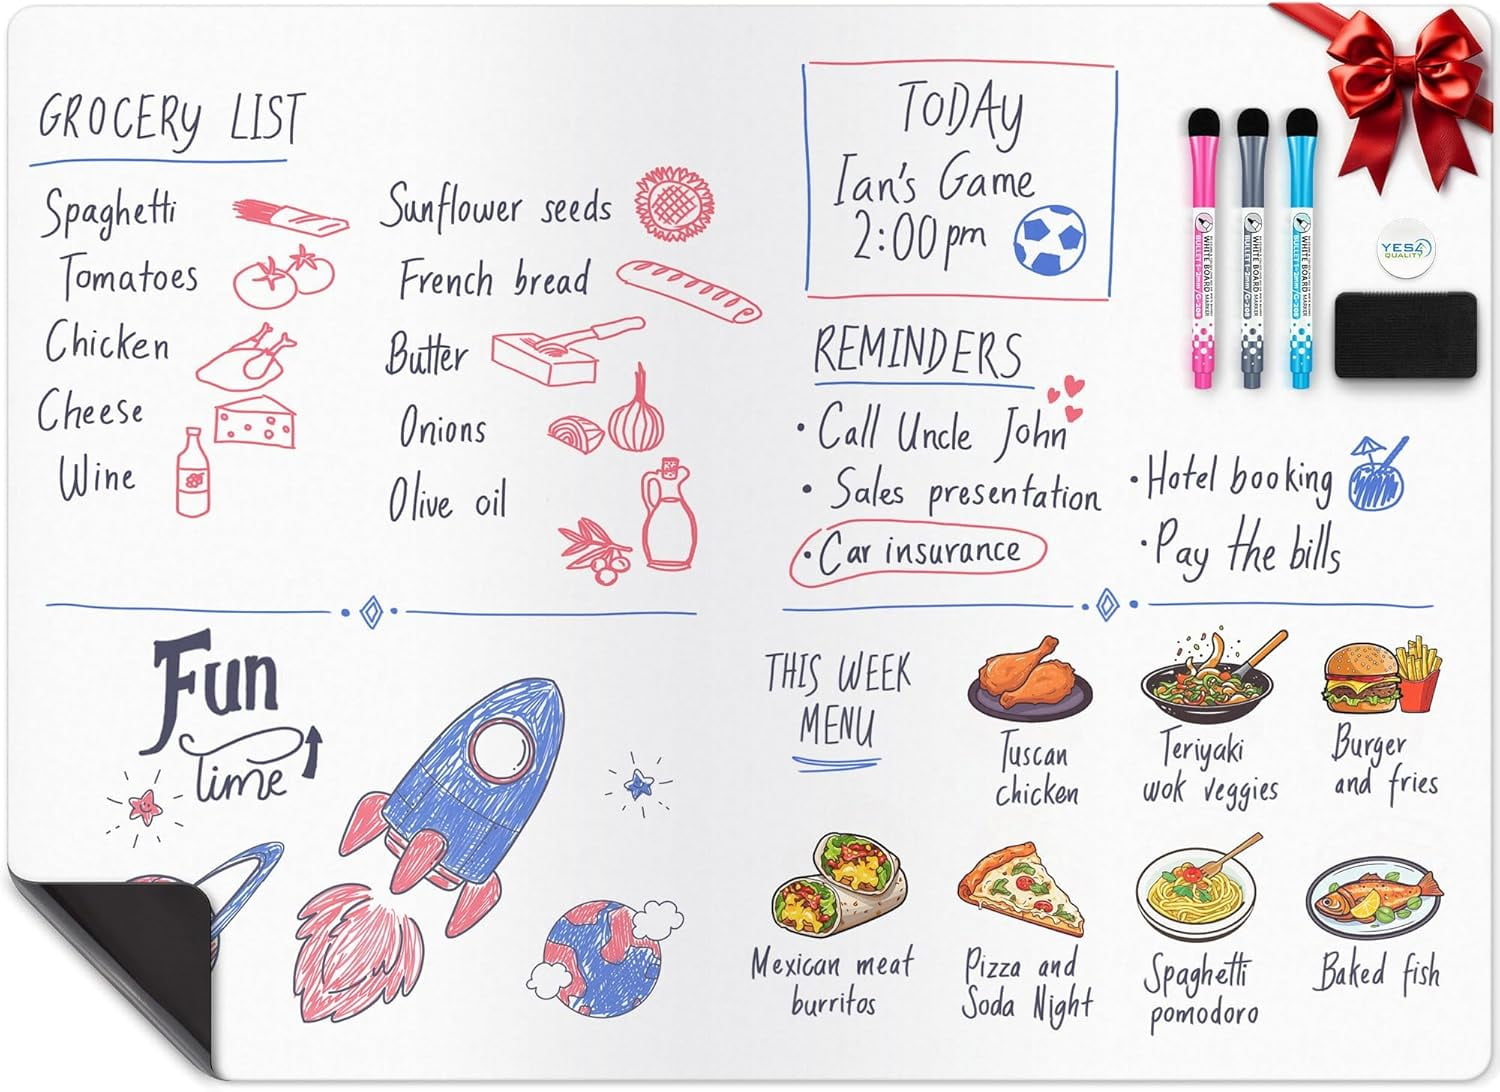 GROCERY LIST
Spaghetti
Tomatoes
Chicken
Cheese
Wine
Sunflower seeds
French bread
Butter
Onions
Olive oil
TODAY
Ian's Game
2:00pm
REMINDERS
• Call Uncle John
• Sales presentation
• Car insurance
• Hotel booking
• Pay the bills
WHITE BOARD MARKER
BULLET 1-2mm/G-208
WHITE BOARD MARKER
BULLET 1-2mm/G-208
WHITE BOARD MARKER
BULLET 1-2mm/G-208
YES4
QUALITY
Fun
time
THIS WEEK
MENU
Tuscan
chicken
Teriyaki
wok veggies
Burger
and fries
Mexican meat
burritos
Pizza and
Soda Night
Spaghetti
pomodoro
Baked fish